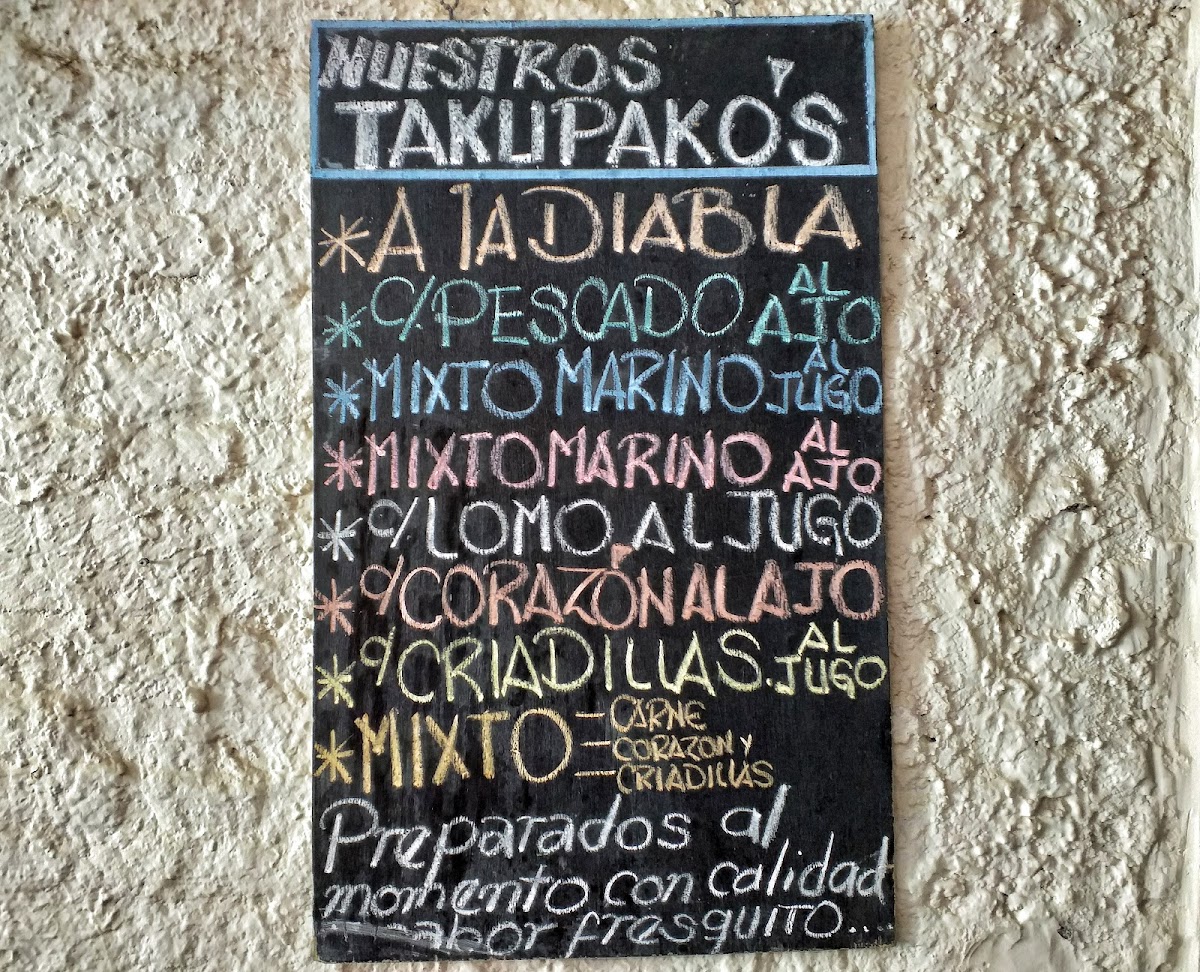 NUESTROS
TAKUPAKO'S
*A laDIABLA
*C/PESCADO AL AJO
*MIXTO MARINO AL JUGO
*MIXTO MARINO AL AJO
*c/LOMO AL JUGO
*c/CORAZÓN AL AJO
*c/CRIADILLAS AL JUGO
*MIXTO = CARNE
CORAZON Y
CRIADILLAS
Preparados al
momento con calidad
sabor fresquito...